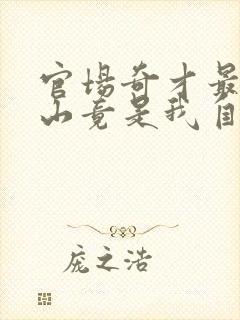 官场奇才最
山竟是我自
庞之浩